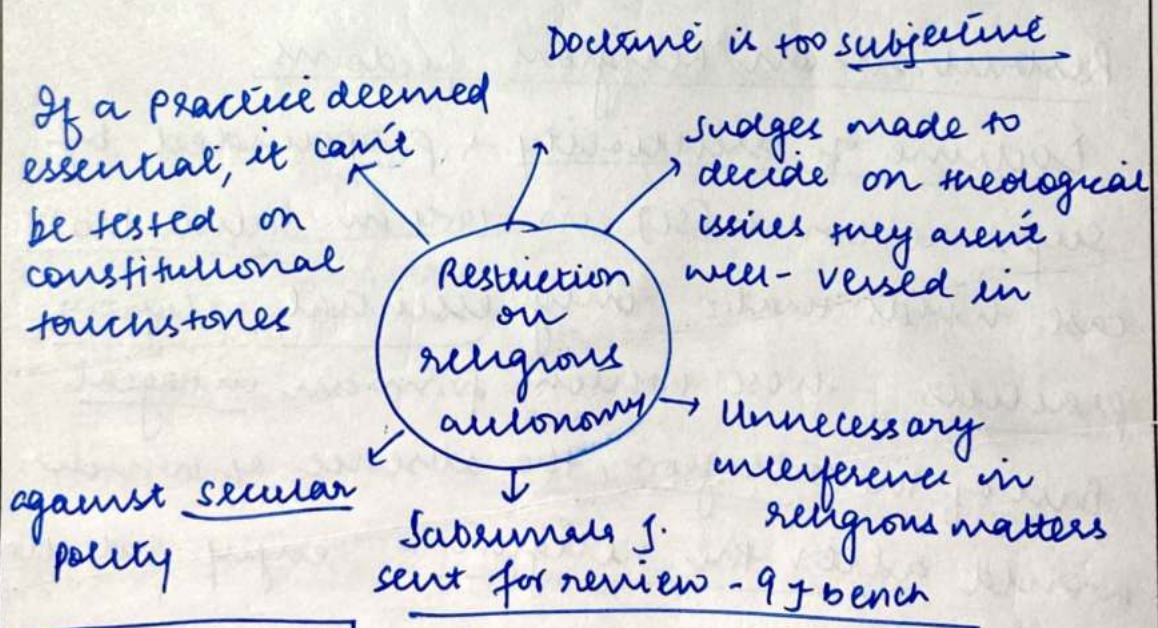 Doctrine is too subjective
If a practice deemed
essential, it can't
be tested on
constitutional
touchstones
Judges made to
decide on theological
issues they aren't
well-versed in
Restriction
on
religious
autonomy
Unnecessary
interference in
religious matters
against secular
polity
Sabrimala J.
sent for review - 9 J bench